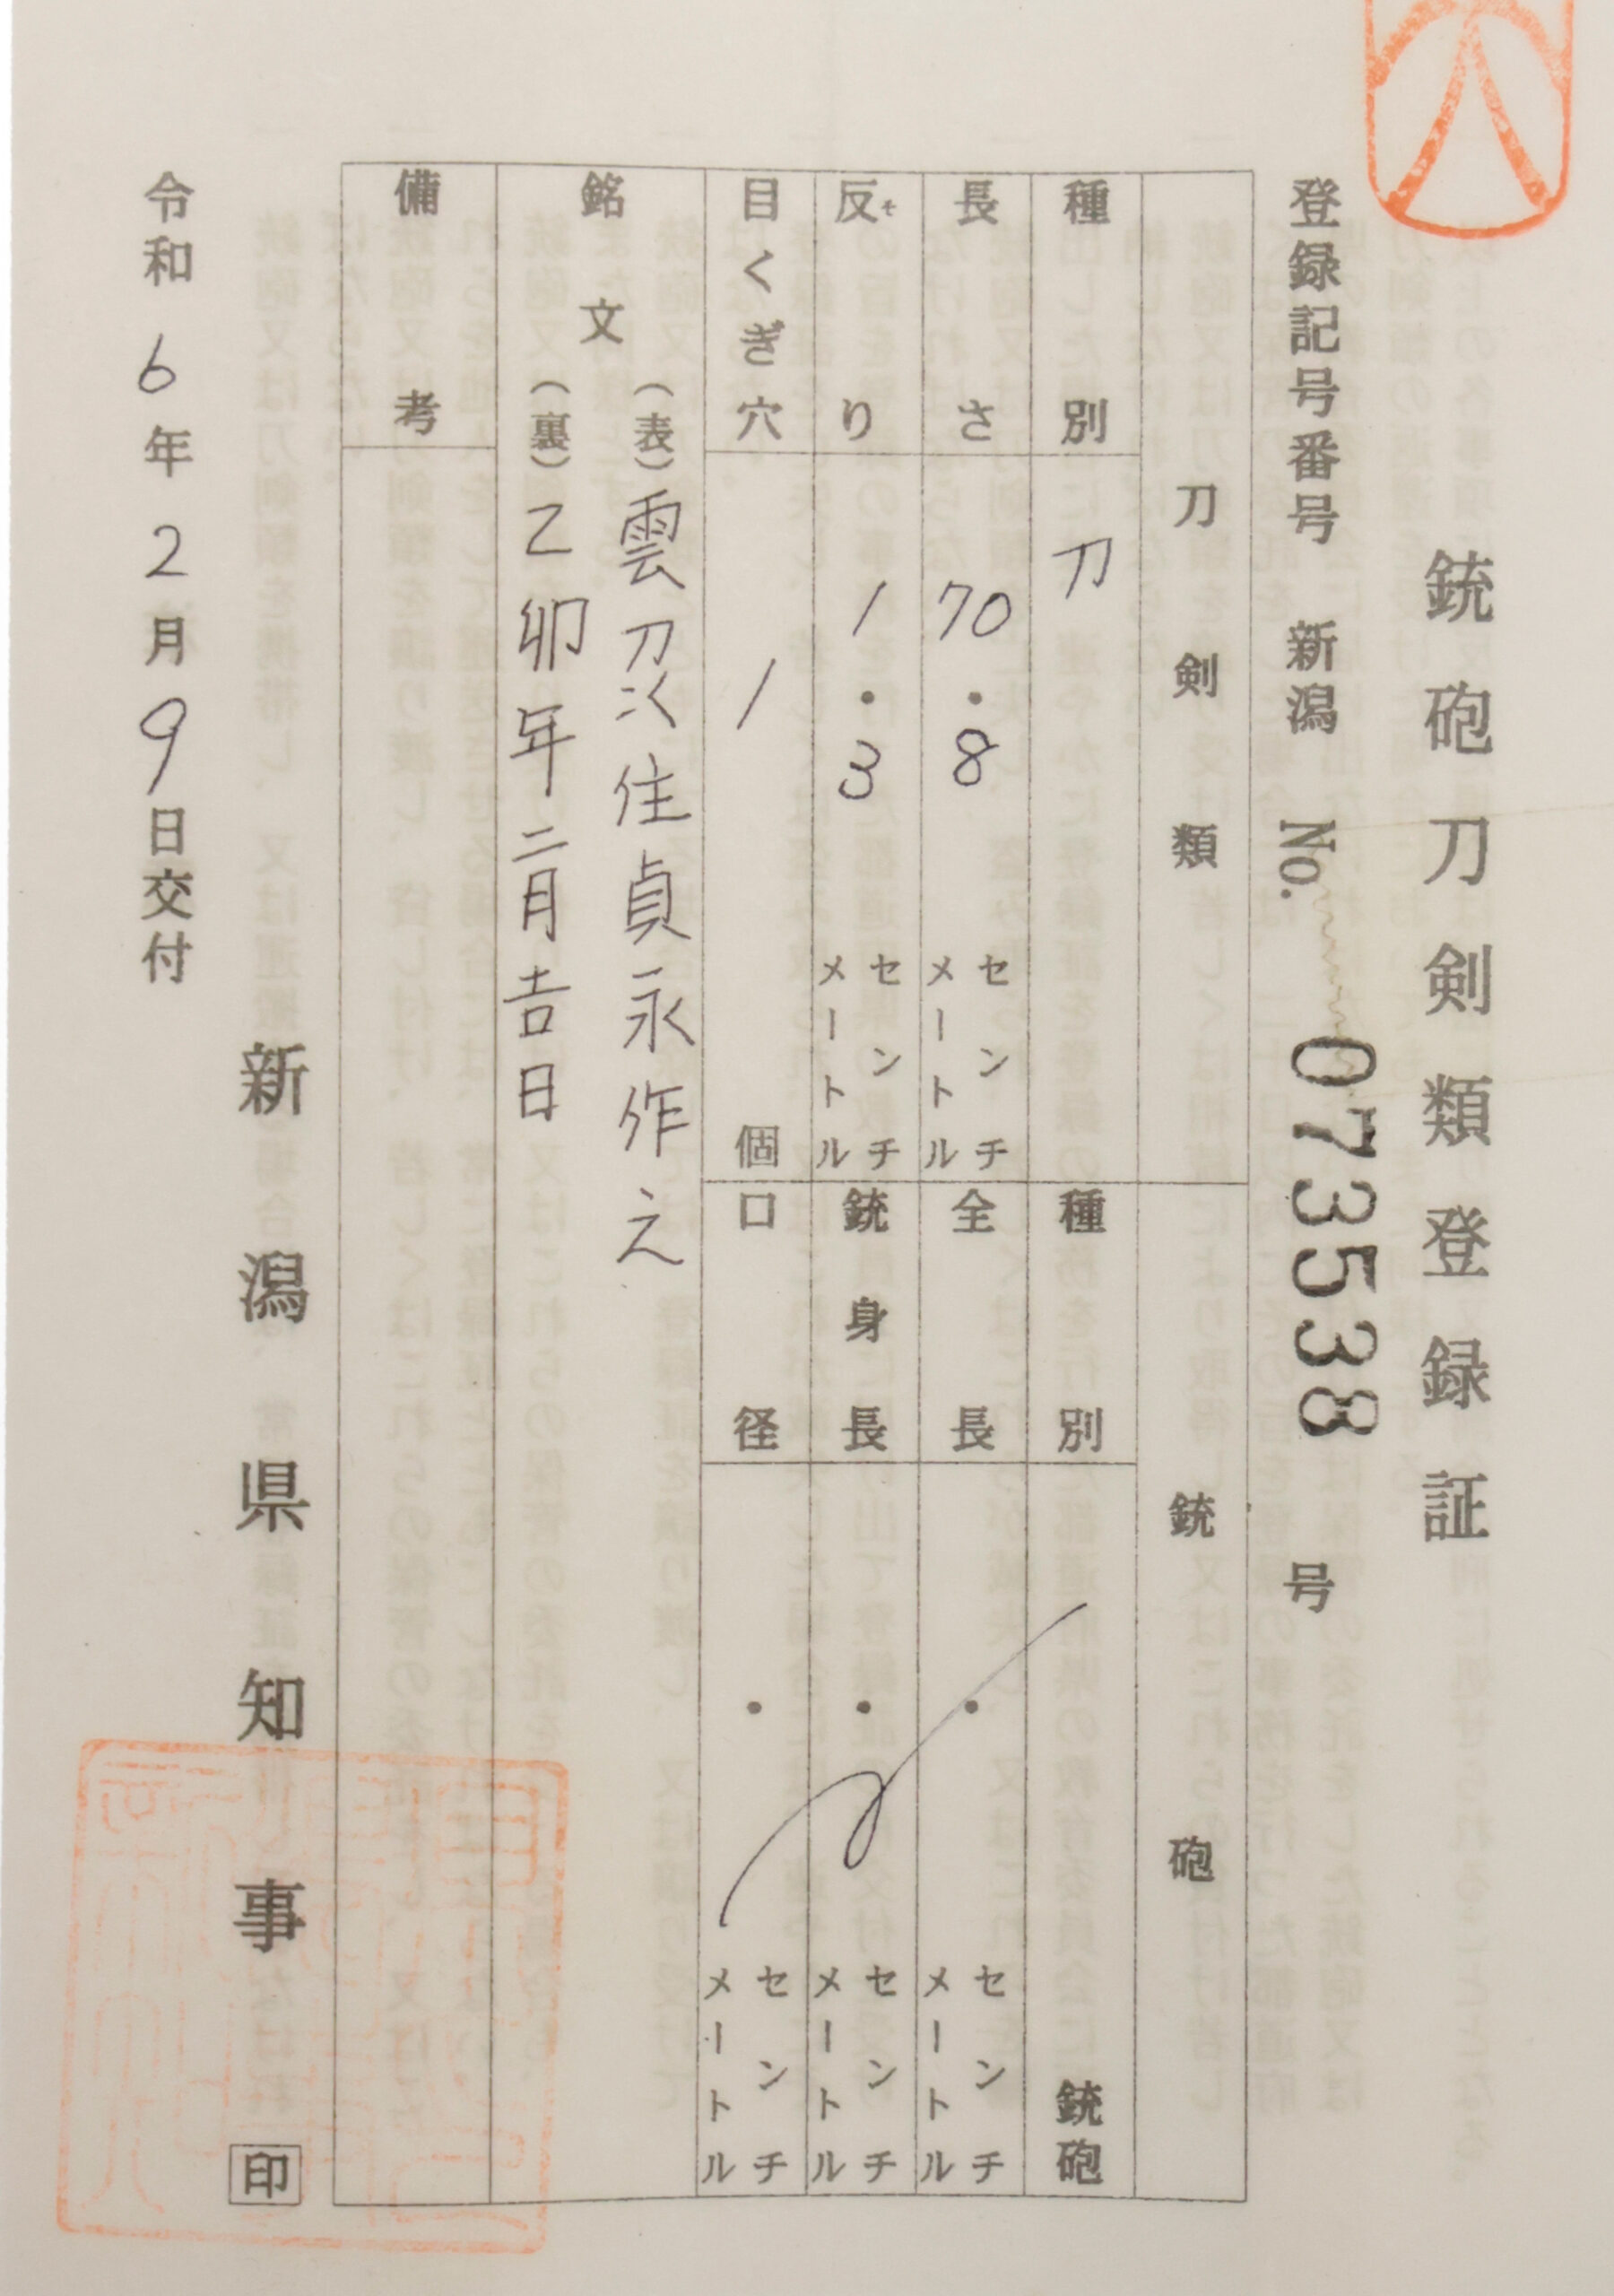 銃砲刀剣類登録証
登録記号番号 新潟 No. 073538 号
刀剣類
種別 刀
長さ 70・8 センチメートル
反り 1・3 センチメートル
目くぎ穴 1 個
銃砲
種別 銃砲
全長 ・ センチメートル
銃身長 ・ センチメートル
口径 ・ センチメートル
銘文
(表) 雲州住貞永作之
(裏) 乙卯年二月吉日
備考
令和6年2月9日交付
新潟県知事 印